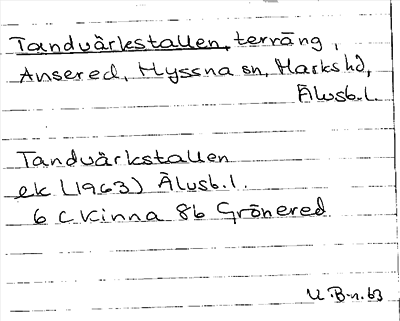 Tandvärkstallen, terräng,
Ansered, Hyssna sn, Marks hd,
Älvsb. l.
Tandvärkstallen
ek (1963) Älvsb. l.
6 C Kinna 8b Grönered
U. B-n. 63